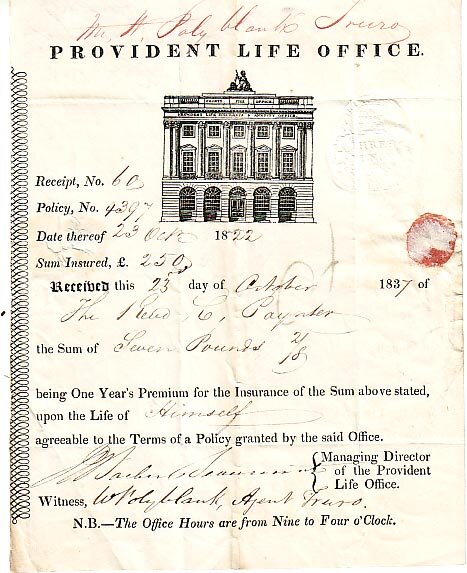 Mr. H. Polyblank Truro
PROVIDENT LIFE OFFICE.
COUNTY FIRE OFFICE
PROVIDENT LIFE INSURANCE & ANNUITY OFFICE
Receipt, No. 60
Policy, No. 4397
Date thereof 23 Oct 1822
Sum Insured, £. 250
Received this 23 day of October 1837 of
The Revd C. Paynter
the Sum of Seven Pounds 2/18
being One Year's Premium for the Insurance of the Sum above stated,
upon the Life of Himself
agreeable to the Terms of a Policy granted by the said Office.
Managing Director
of the Provident
Life Office.
Witness, W Polyblank, Agent Truro.
N.B.—The Office Hours are from Nine to Four o'Clock.